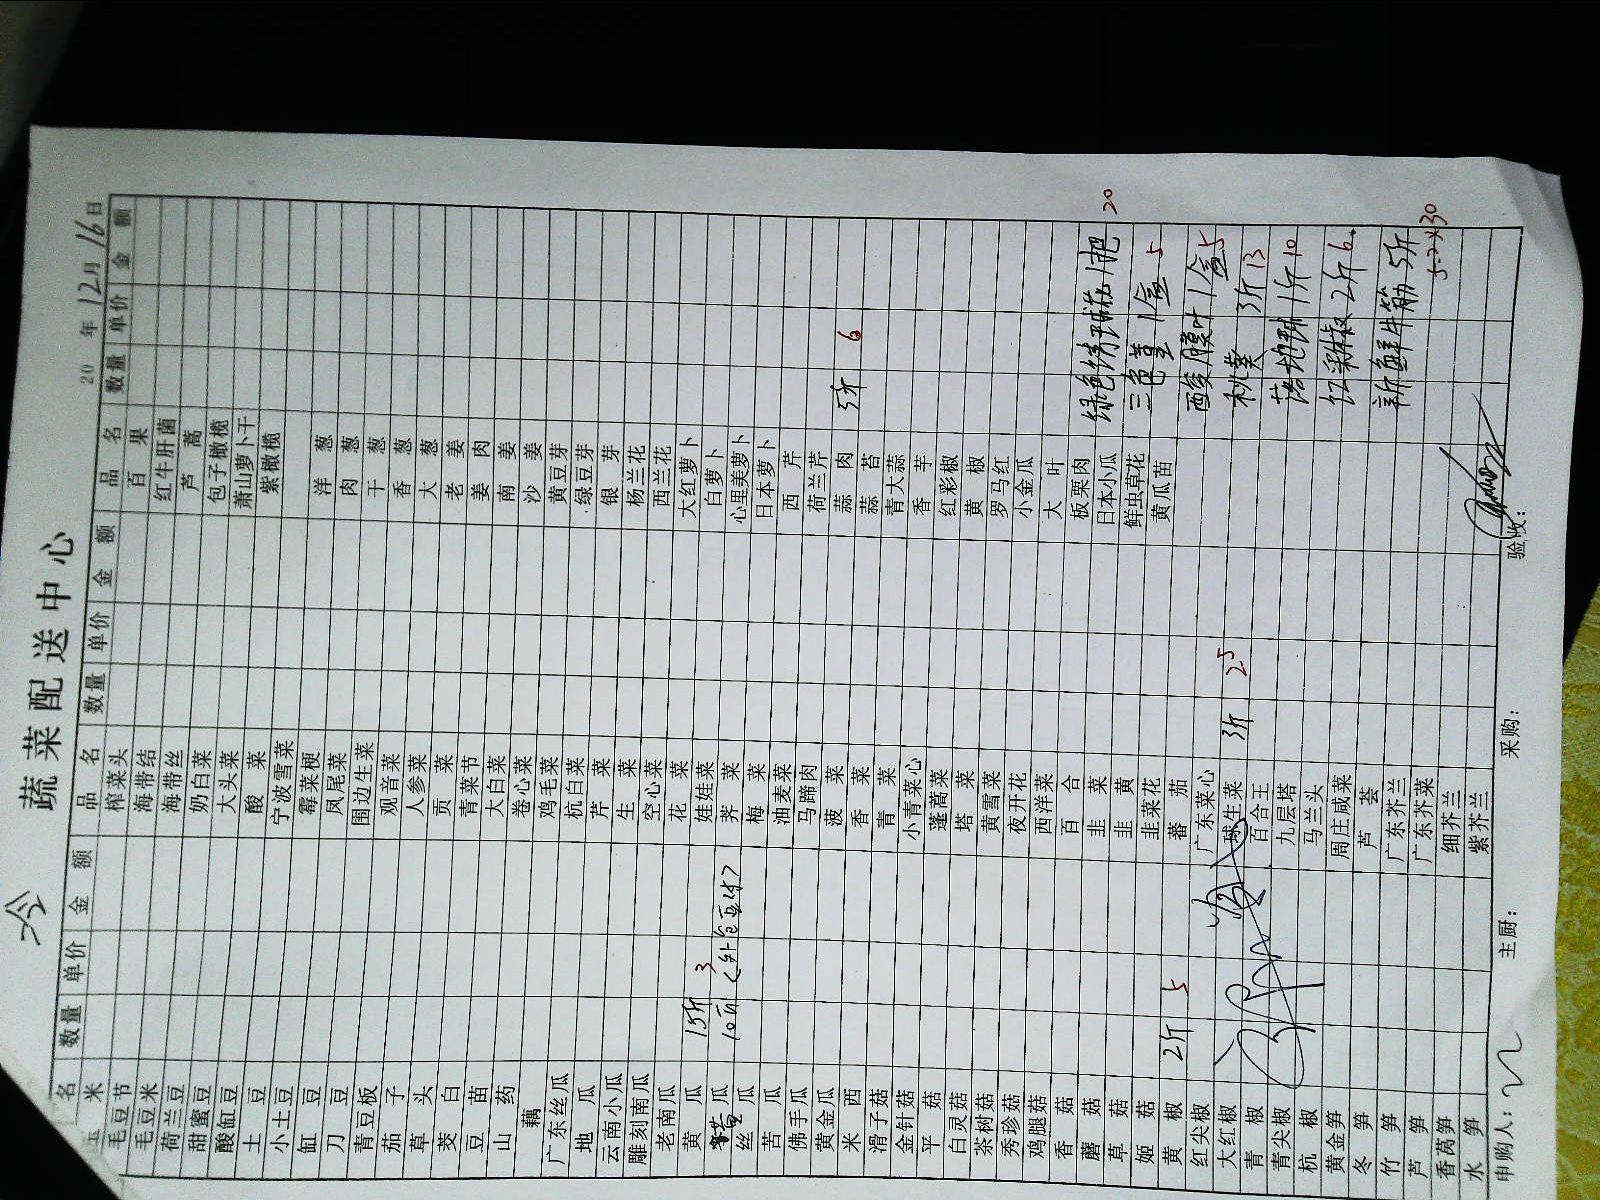 冷
蔬菜配送中心
20 年 12月 16日
品名 数量 单价 金额 品名 数量 单价 金额 品名 数量 单价 金额
米 榨菜头 百果
毛豆节 海带结 红牛肝菌
毛豆米 海带丝 芦蒿
荷兰豆 奶白菜 包子橄榄
甜蜜豆 大头菜 萧山萝卜干
酸缸豆 酸菜 紫橄榄
土豆 宁波雪菜
小土豆 霉菜梗 洋葱
缸豆 凤尾菜 肉葱
刀豆 围边生菜 干葱
青豆板 观音菜 香葱
茄子 人参菜 大葱
草头 贡菜 老姜
茭白 青菜节 姜肉
豆苗 大白菜 南姜
山药 卷心菜 沙姜
藕 鸡毛菜 黄豆芽
广东丝瓜 杭白菜 绿豆芽
地瓜 芹菜 银芽
云南小瓜 生菜 杨兰花
雕刻南瓜 空心菜 西兰花
老南瓜 花菜 大红萝卜
黄瓜 15斤 3 娃娃菜 白萝卜
瓜 10 荠菜 心里美萝卜
丝瓜 梅菜 日本萝卜
苦瓜 油麦菜 西芹
佛手瓜 马蹄肉 荷兰芹
黄金瓜 菠菜 蒜肉 5斤 6
米西 香菜 蒜苔
滑子菇 青菜 青大蒜
金针菇 小青菜心 香芋
平菇 蓬蒿菜 红彩椒
白灵菇 塔菜 黄椒
茶树菇 黄雪菜 罗马红
秀珍菇 夜开花 小金瓜
鸡腿菇 西洋菜 大叶
香菇 百合 板栗肉
蘑菇 韭菜 日本小瓜 绿色 1把 20
草菇 韭黄 鲜虫草花 三色堇 1盒 5
姬菇 韭菜花 黄瓜苗
黄椒 2斤 5 蕃茄 酸膜叶 1盒 5
红尖椒 广东菜心
大红椒 球生菜 3斤 25 秋葵 3斤 13
青椒 百合王
青尖椒 九层塔 1斤 10
杭椒 马兰头
黄金笋 周庄咸菜 红彩椒 2斤 6
冬笋 芦荟
竹笋 广东芥兰 新鲜牛筋 5斤
芦笋 广东芥菜 5.2 × 30
香莴笋 细芥兰
水笋 紫芥兰
申购人： 主厨： 采购： 验收：